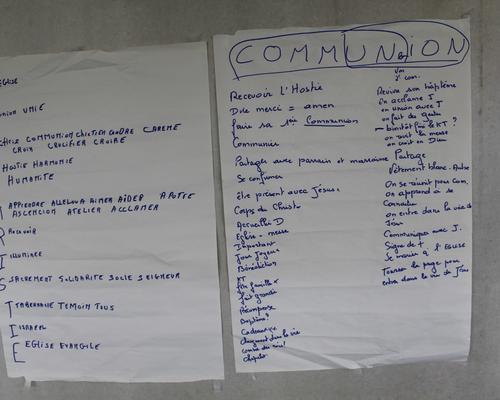 EGLISE
UNION UNIE
CHRIST COMMUNION CHRETIEN CENDRE CAREME
CROIX CRUCIFIER CROIRE
HOSTIE HARMONIE
HUMANITE
APPRENDRE ALLELUIA AIMER AIDER APOTRE
ASCENCION ATELIER ACCLAMER
RECEVOIR
I ILLUMINEE
S SACREMENT SOLIDARITE SOLIE SEIGNEUR
T TABERNACLE TEMOIN TOUS
I ISRAEL
E EGLISE EVANGILE
COMMUNION
Recevoir l'Hostie
Dire merci = amen
faire sa 1ère Communion
Communier
Partage avec parrain et marraine
Se confirmer
être présent avec Jésus
Corps du Christ
Accueille D
Eglise - messe
Important
Jour Joyeux
Bénédiction
KT
fait grandir
Récompense
Baptême
Cadeau
changement dans la vie
chapelet
Revivre son baptême
on acclame J
en union avec J
on fait des gestes
bientôt fini le KT ?
on croit en Dieu
Partage
Vêtement blanc - Aube
On se réunit pour Com.
on apprend à se
Connaître
on entre dans la vie de
Jésus
Communiquer avec J.
Signe de +
Se marier à l'Eglise
Tourner la page pour
entrer dans la vie de Jésus